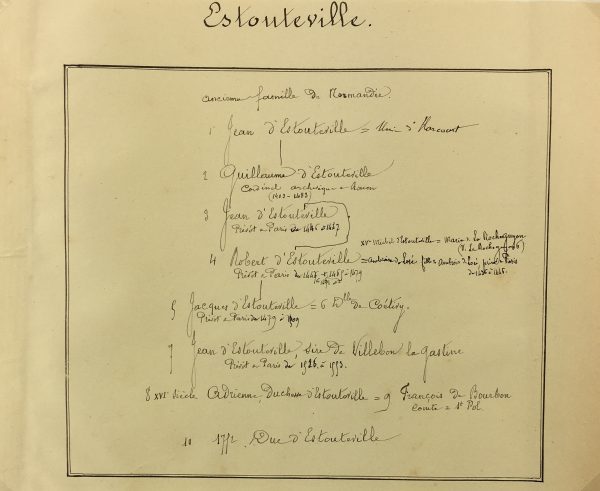 Estouteville.
ancienne famille de Normandie.
1 Jean d'Estouteville = d'Harcourt
2 Guillaume d'Estouteville
Cardinal archevêque
(1403-1483)
3 Jean d'Estouteville
Prévôt Paris de 1446 à 1447
XVe Michel d'Estouteville = Marie de La Rocheguyon
4 Robert d'Estouteville = Ambroise de Loré fille Ambroise de Loré, Paris
Prévôt Paris de 1447 1479
de 1436 à 1446.
5 Jacques d'Estouteville = 6 de Contivy.
Prévôt Paris de 1479 à 1509
7 Jean d'Estouteville, sire de Villebon la Gastine
Prévôt Paris de 1526 à 1553.
8 XVIe Siècle Adrienne, Duchesse d'Estouteville = 9 François de Bourbon
Comte St Pol.
10 1772. Duc d'Estouteville